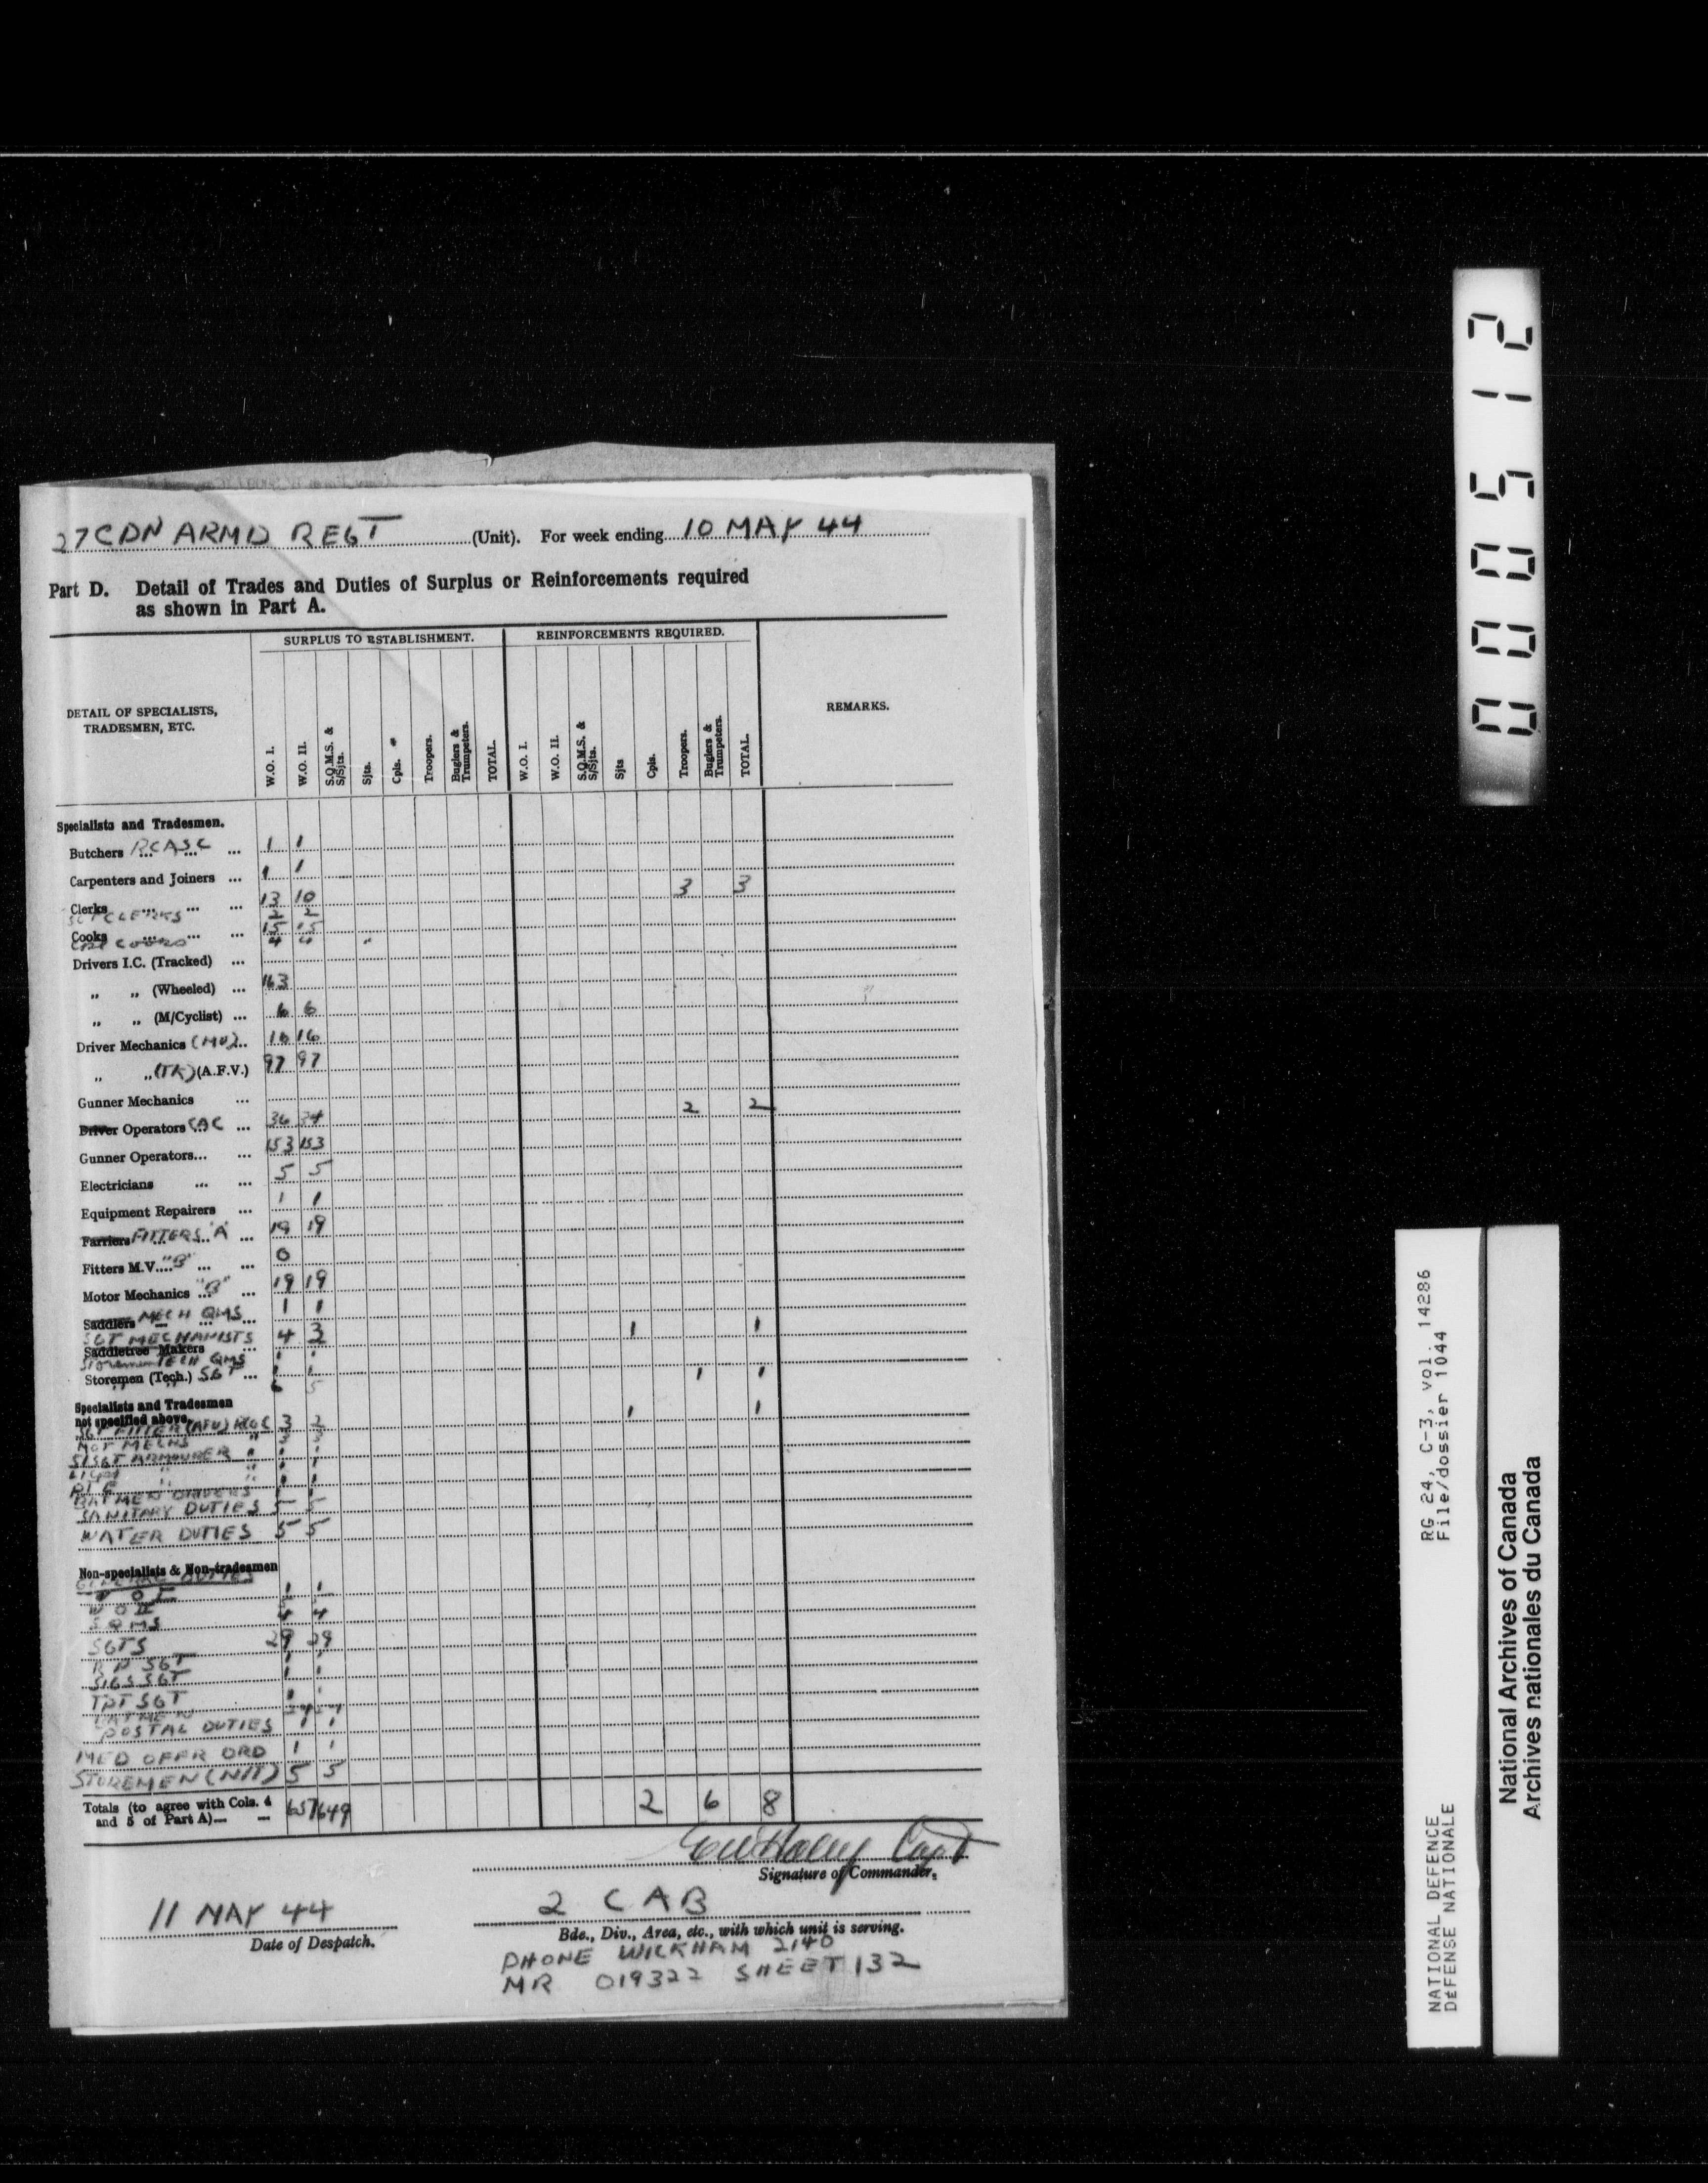 27 CDN ARMD REGT (Unit). For week ending 10 MAY 44
Part D. Detail of Trades and Duties of Surplus or Reinforcements required
as shown in Part A.
DETAIL OF SPECIALISTS,
TRADESMEN, ETC.
SURPLUS TO ESTABLISHMENT.
REINFORCEMENTS REQUIRED.
REMARKS.
W.O. I.
W.O. II.
S.Q.M.S. &
S/Sjts.
Sjts.
Cpls.
Troopers.
Buglers &
Trumpeters.
TOTAL.
W.O. I.
W.O. II.
S.Q.M.S. &
S/Sjts.
Sjts
Cpls.
Troopers.
Buglers &
Trumpeters.
TOTAL.
Specialists and Tradesmen.
Butchers RCASC ... 1 1
Carpenters and Joiners ... 1 1
Clerks ... ... ... 13 10 3 3
CLERKS 2 2
Cooks ... ... ... 15 15
COOKS 4 4
Drivers I.C. (Tracked) ...
„ „ (Wheeled) ... 163
„ „ (M/Cyclist) ... 6 6
Driver Mechanics (MV) ... 16 16
„ „ (TK) (A.F.V.) 97 97
Gunner Mechanics ...
Driver Operators CAC ... 36 34 2 2
Gunner Operators... ... 153 153
Electricians ... ... 5 5
Equipment Repairers ... 1 1
Farriers FITTERS "A" ... 19 19
Fitters M.V. "B" ... ... 0
Motor Mechanics "B" ... 19 19
Saddlers MECH QMS ... 1 1
SGT MECHANISTS 4 3 1 1
Saddletree Makers ...
Storemen TECH QMS 1 1
Storemen (Tech.) SGT ... 1 1 1 1
„ „ 6 5
Specialists and Tradesmen
not specified above.
SGT FITTER (AFV) RCOC 3 2 1 1
MOT MECHS " 3 3
S/SGT ARMOURER " 1 1
BATMEN DRIVERS 1 1
SANITARY DUTIES 5 5
WATER DUTIES 5 5
Non-specialists & Non-tradesmen
GENERAL DUTIES
W O I 1 1
W O II
SQMS 4 4
SGTS 29 29
R P SGT 1 1
SIGS SGT 1 1
TPT SGT 1 1
BATMEN
POSTAL DUTIES 1 1
MED OFFR ORD 1 1
STOREMEN (N/T) 5 5
Totals (to agree with Cols. 4
and 5 of Part A)— — 657 649 2 6 8
Capt
Signature of Commander.
11 MAY 44
Date of Despatch.
2 CAB
Bde., Div., Area, etc., with which unit is serving.
PHONE WICKHAM 2140
MR 019322 SHEET 132
000512
RG 24, C-3, vol. 14286
File/dossier 1044
NATIONAL DEFENCE
DÉFENSE NATIONALE
National Archives of Canada
Archives nationales du Canada